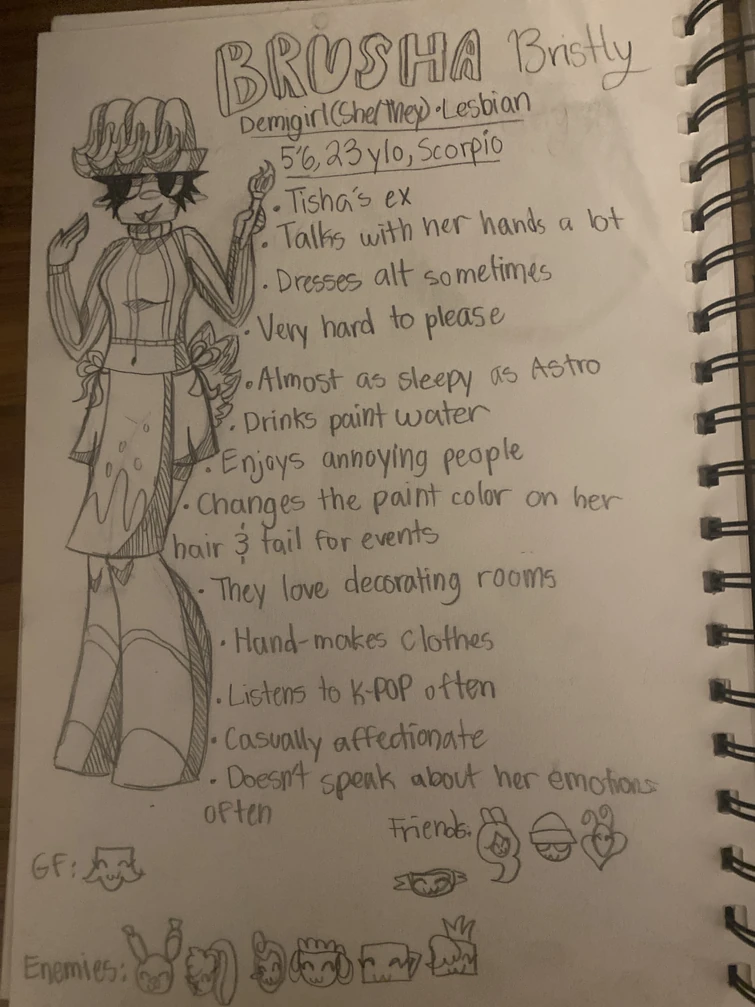 BRUSHA Bristly
Demigirl(She/They)•Lesbian
5'6, 23 y/o, Scorpio
• Tisha's ex
• Talks with her hands a lot
• Dresses alt sometimes
• Very hard to please
• Almost as sleepy as Astro
• Drinks paint water
• Enjoys annoying people
• Changes the paint color on her
hair & tail for events
• They love decorating rooms
• Hand-makes clothes
• Listens to K-POP often
• Casually affectionate
• Doesn't speak about her emotions
often
Friends:
GF:
Enemies: